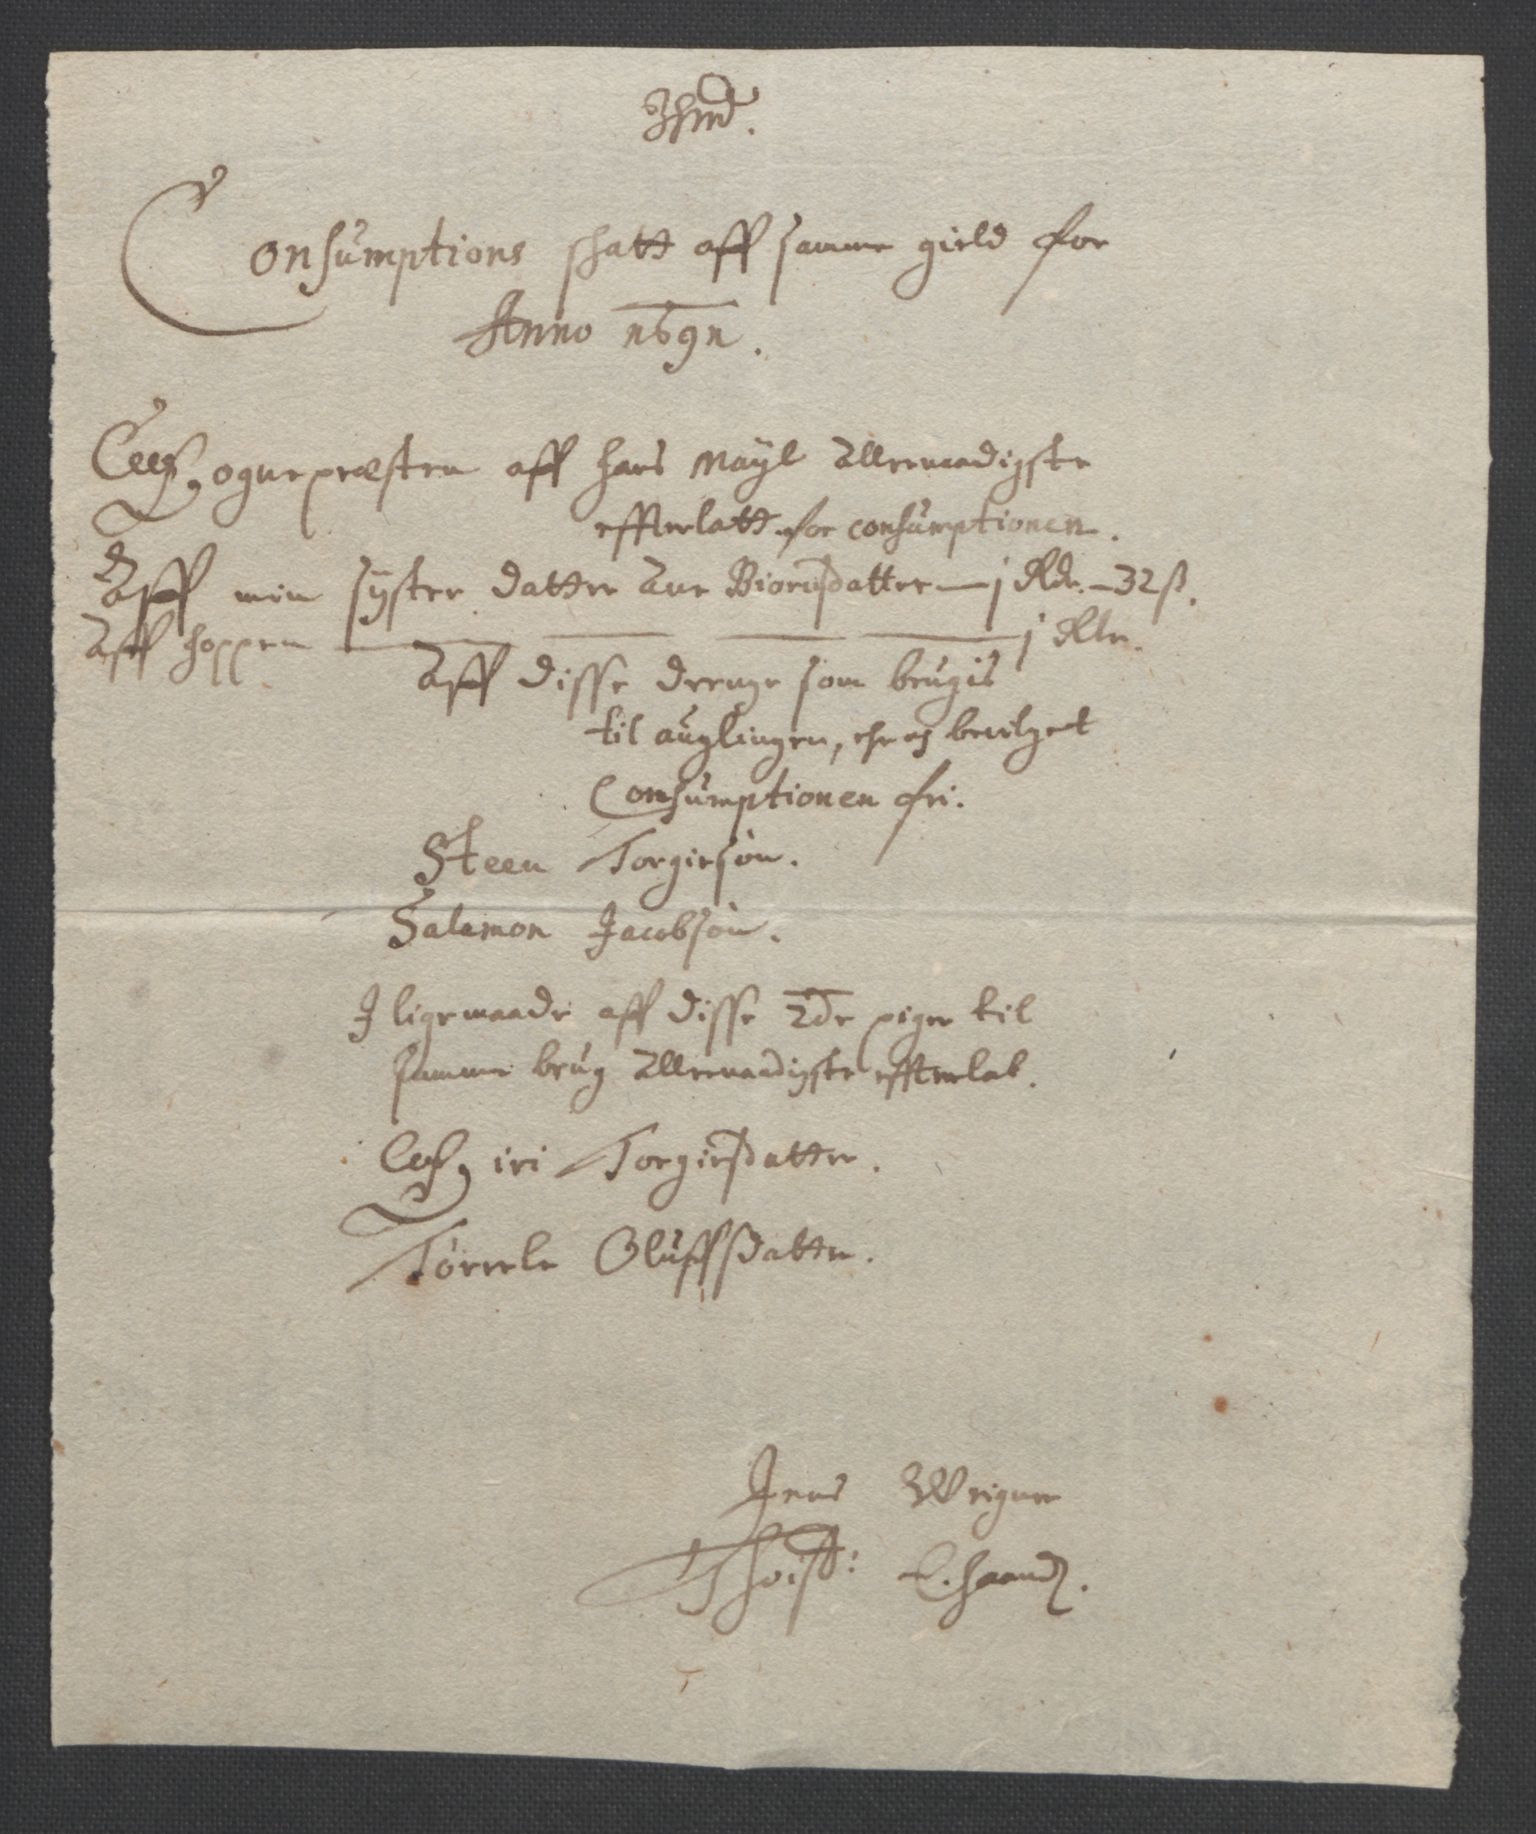 Jhmd.
Consumptions skatt aff samme gield for
Anno 1691.
sognepræsten aff hans Mayt allernaadigste
effterlatt for consumptionen.
Aff min syster datter Ane Biornsdatter — j Rdr. — 32 ß.
Aff hoppen — — — — j Rdr.
Aff disse drenge som brugis
til auglingen, er og bevilget
Consumptionen fri.
Steen Torgierson.
Salamon Jacobsøn.
J ligemaade aff disse 2de piger til
samme brug allernaadigste effterlat.
Siri Torgiersdatter.
Törrele Oluffsdatter.
Jens Weigner
E. haand.